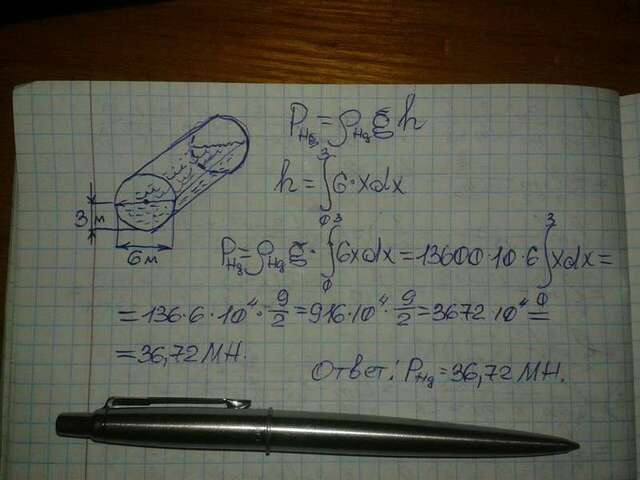 P_Hg = ρ_Hg g h
h = ∫₀³ 6·xdx
3 м
6 м
P_Hg = ρ_Hg g · ∫₀³ 6xdx = 13600·10·6 ∫₀³ xdx =
= 136·6·10⁴ · 9/2 = 916·10⁴ · 9/2 = 3672·10⁴ =
= 36,72 МН.
Ответ: P_Hg = 36,72 МН.